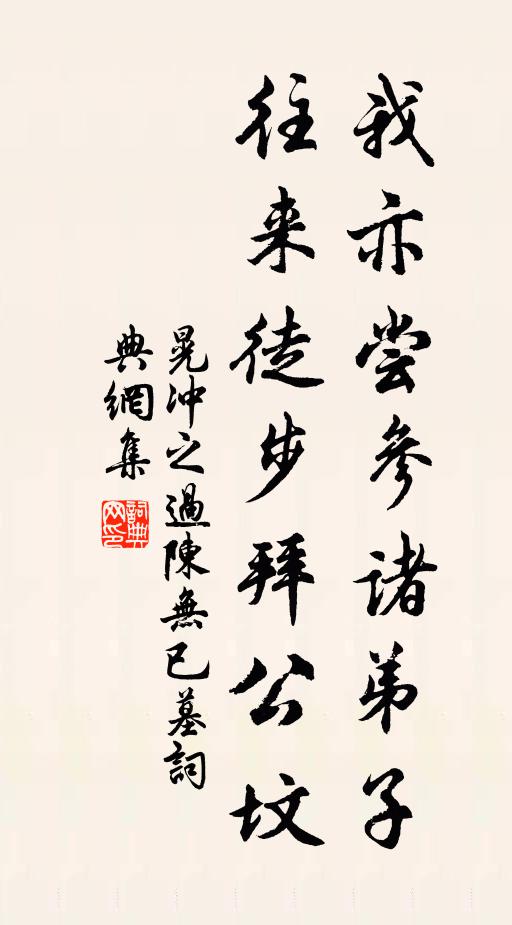 我亦尝參諸弟子
往来徒步拜公坟
晁冲之過陳無已墓詞
典網集
詞典
网印